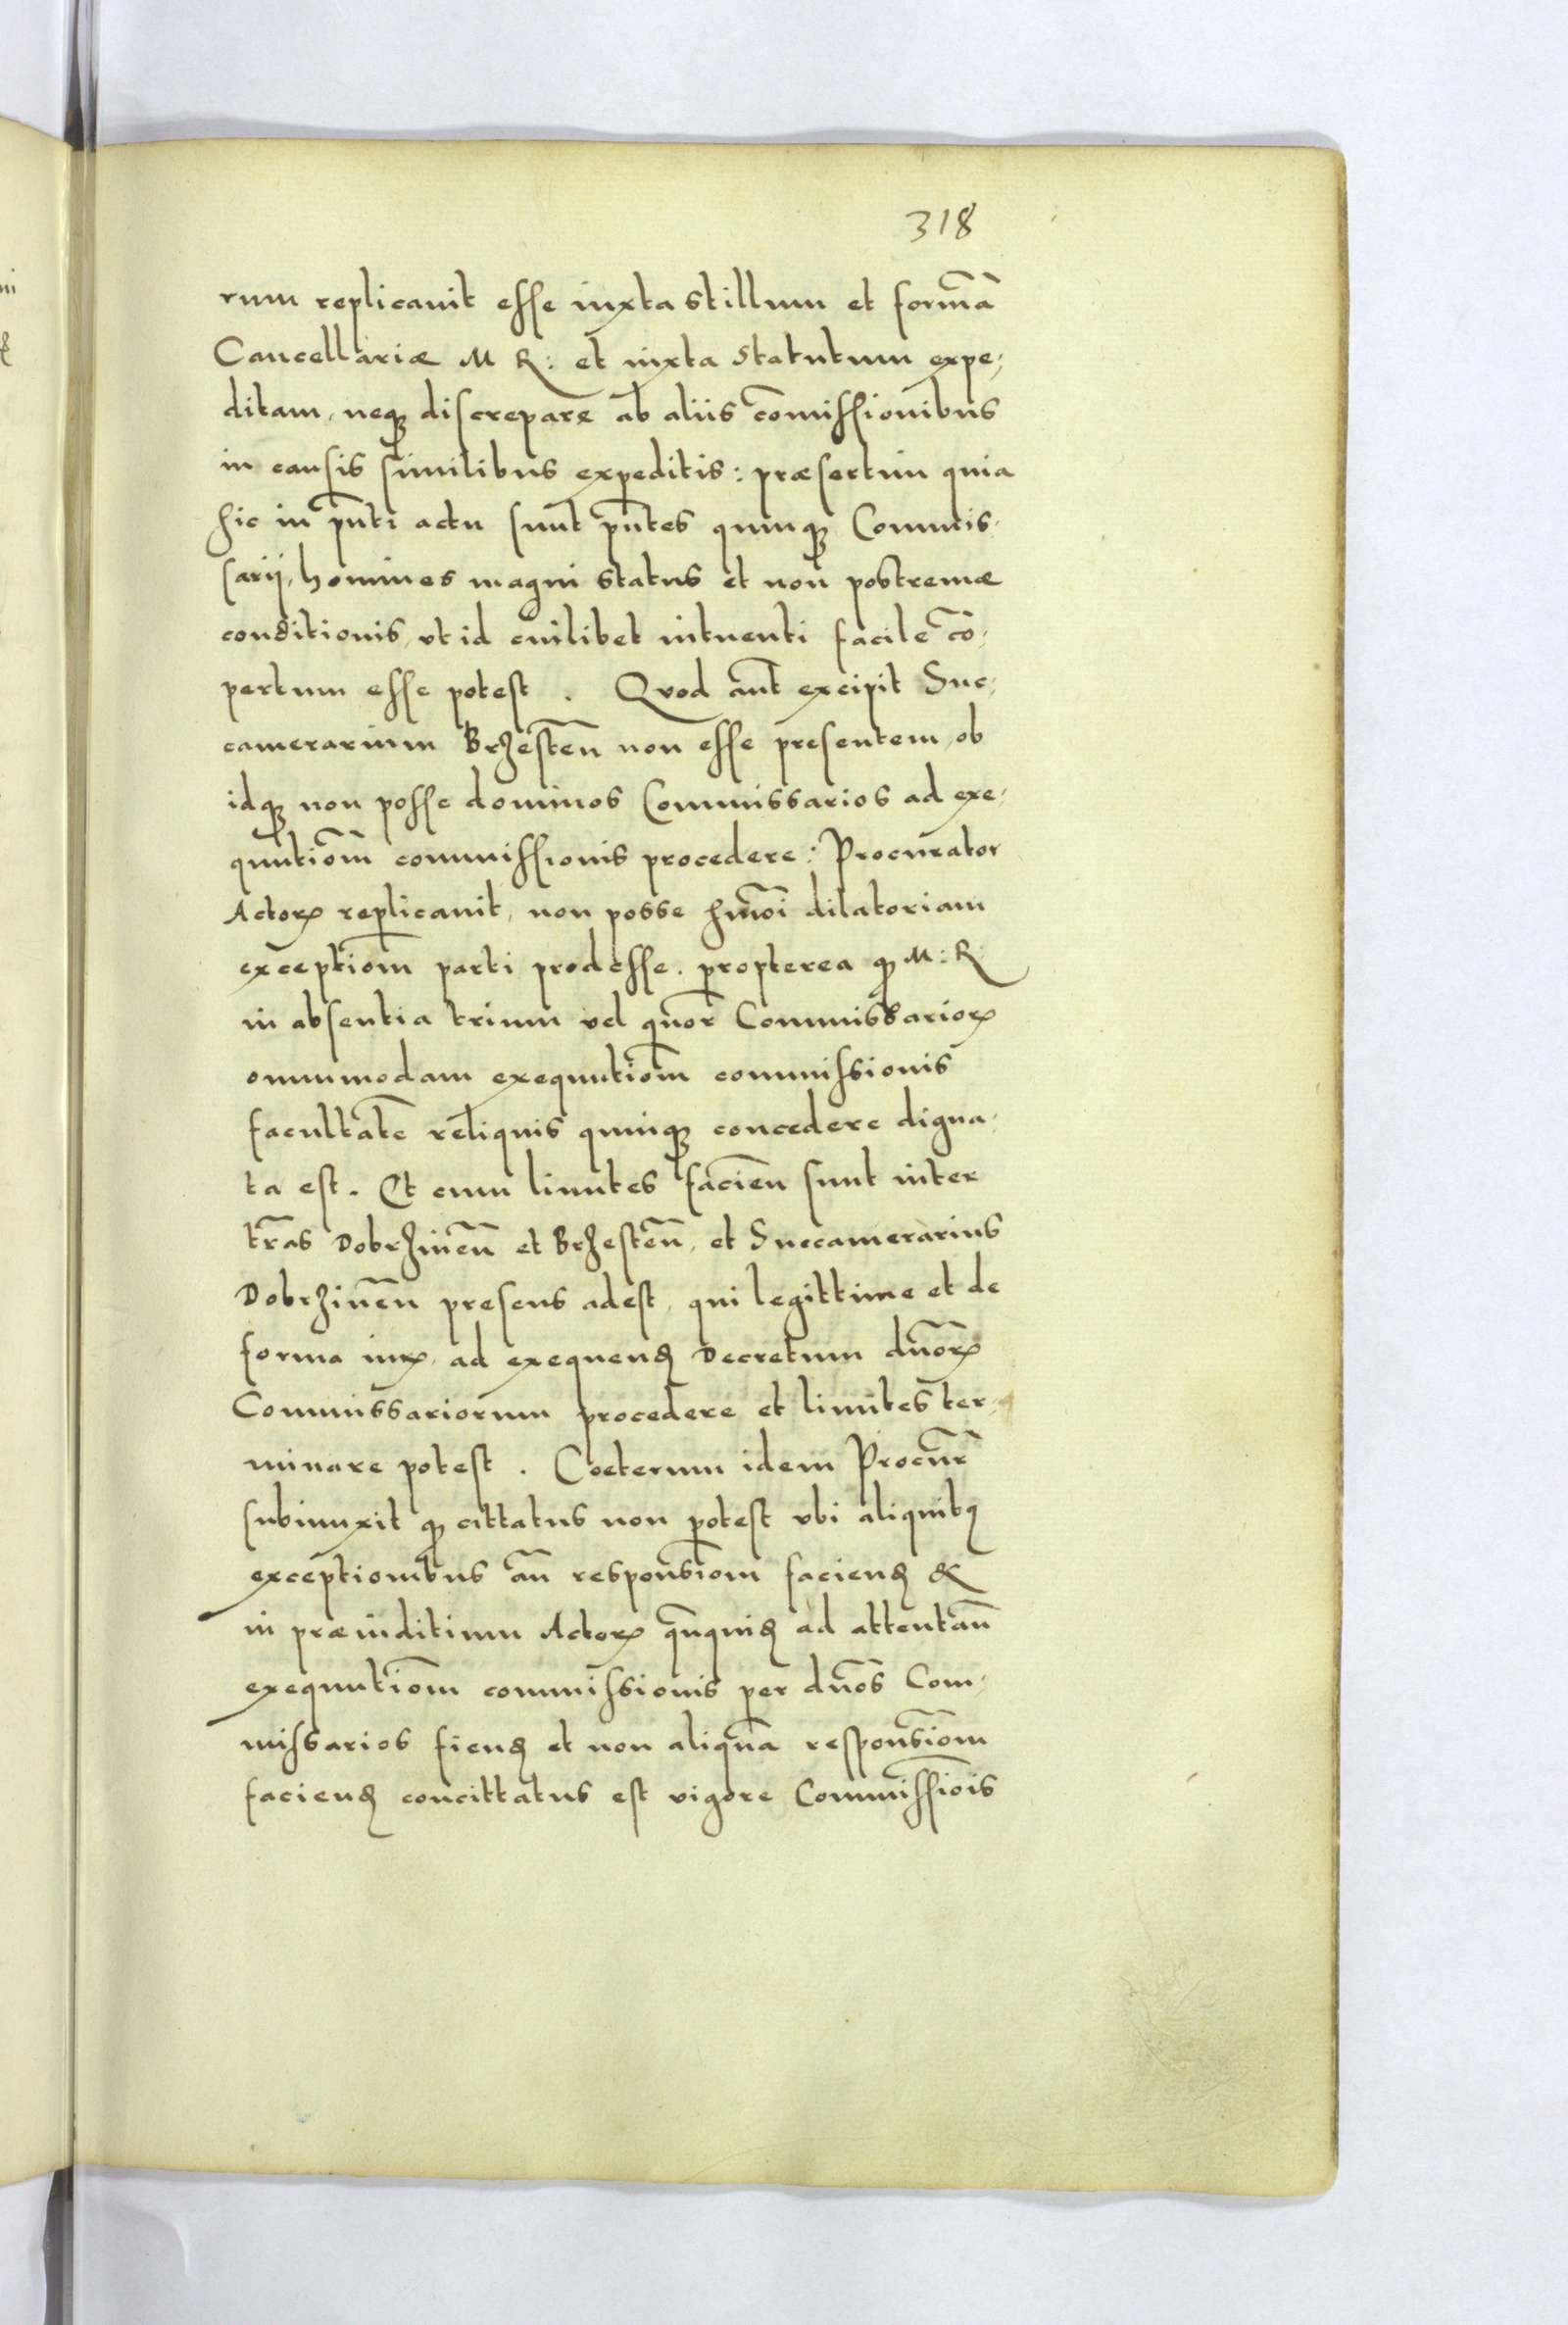 318
rum replicauit esse iuxta stillum et formā
Cancellariæ M R: et iuxta statutum expe,
ditam, neqꝫ discrepare ab aliis cōmissionibus
in causis similibus expeditis: præsertim quia
hic in pn̄ti actu sunt pn̄tes quinqꝫ Commis,
sarij, homines magni status et non postremæ
conditionis, vt id cuilibet intuenti facile cō,
pertum esse potest . Quod aut̄ excipit Suc,
camerarium Brzestēn non esse presentem, ob
idqꝫ non posse dominos Commissarios ad exe,
quutiōm commissionis procedere: Procurator
Actorꝝ replicauit, non posse hmōi dilatoriam
exceptiōm parti prodesse. propterea qꝫ M: R
in absentia trium vel quor̄ Commissariorꝝ
omnimodam exequutiōm commissionis
facultatē reliquis quinqꝫ concedere digna,
ta est. Et cum limites faciēn sunt inter
tr̄as Dobrzinēn et Brzestēn, et Succamerarius
Dobrzinēn presens adest, qui legittime et de
forma iurꝫ ad exequendꝫ Decretum dn̄orꝝ
Commissariorum procedere et limites ter,
minare potest . Coeterum idem Procur̄
subiunxit qꝫ cittatus non potest vbi aliquibꝫ
exceptionibus an̄ responsiōm faciendꝫ &
in præiuditium Actorꝝ ad attentan̄
exequutiōm commissionis per dn̄os Com,
missarios fiendꝫ et non aliquā responsiōm
faciendꝫ concittatus est vigore Commissiōis